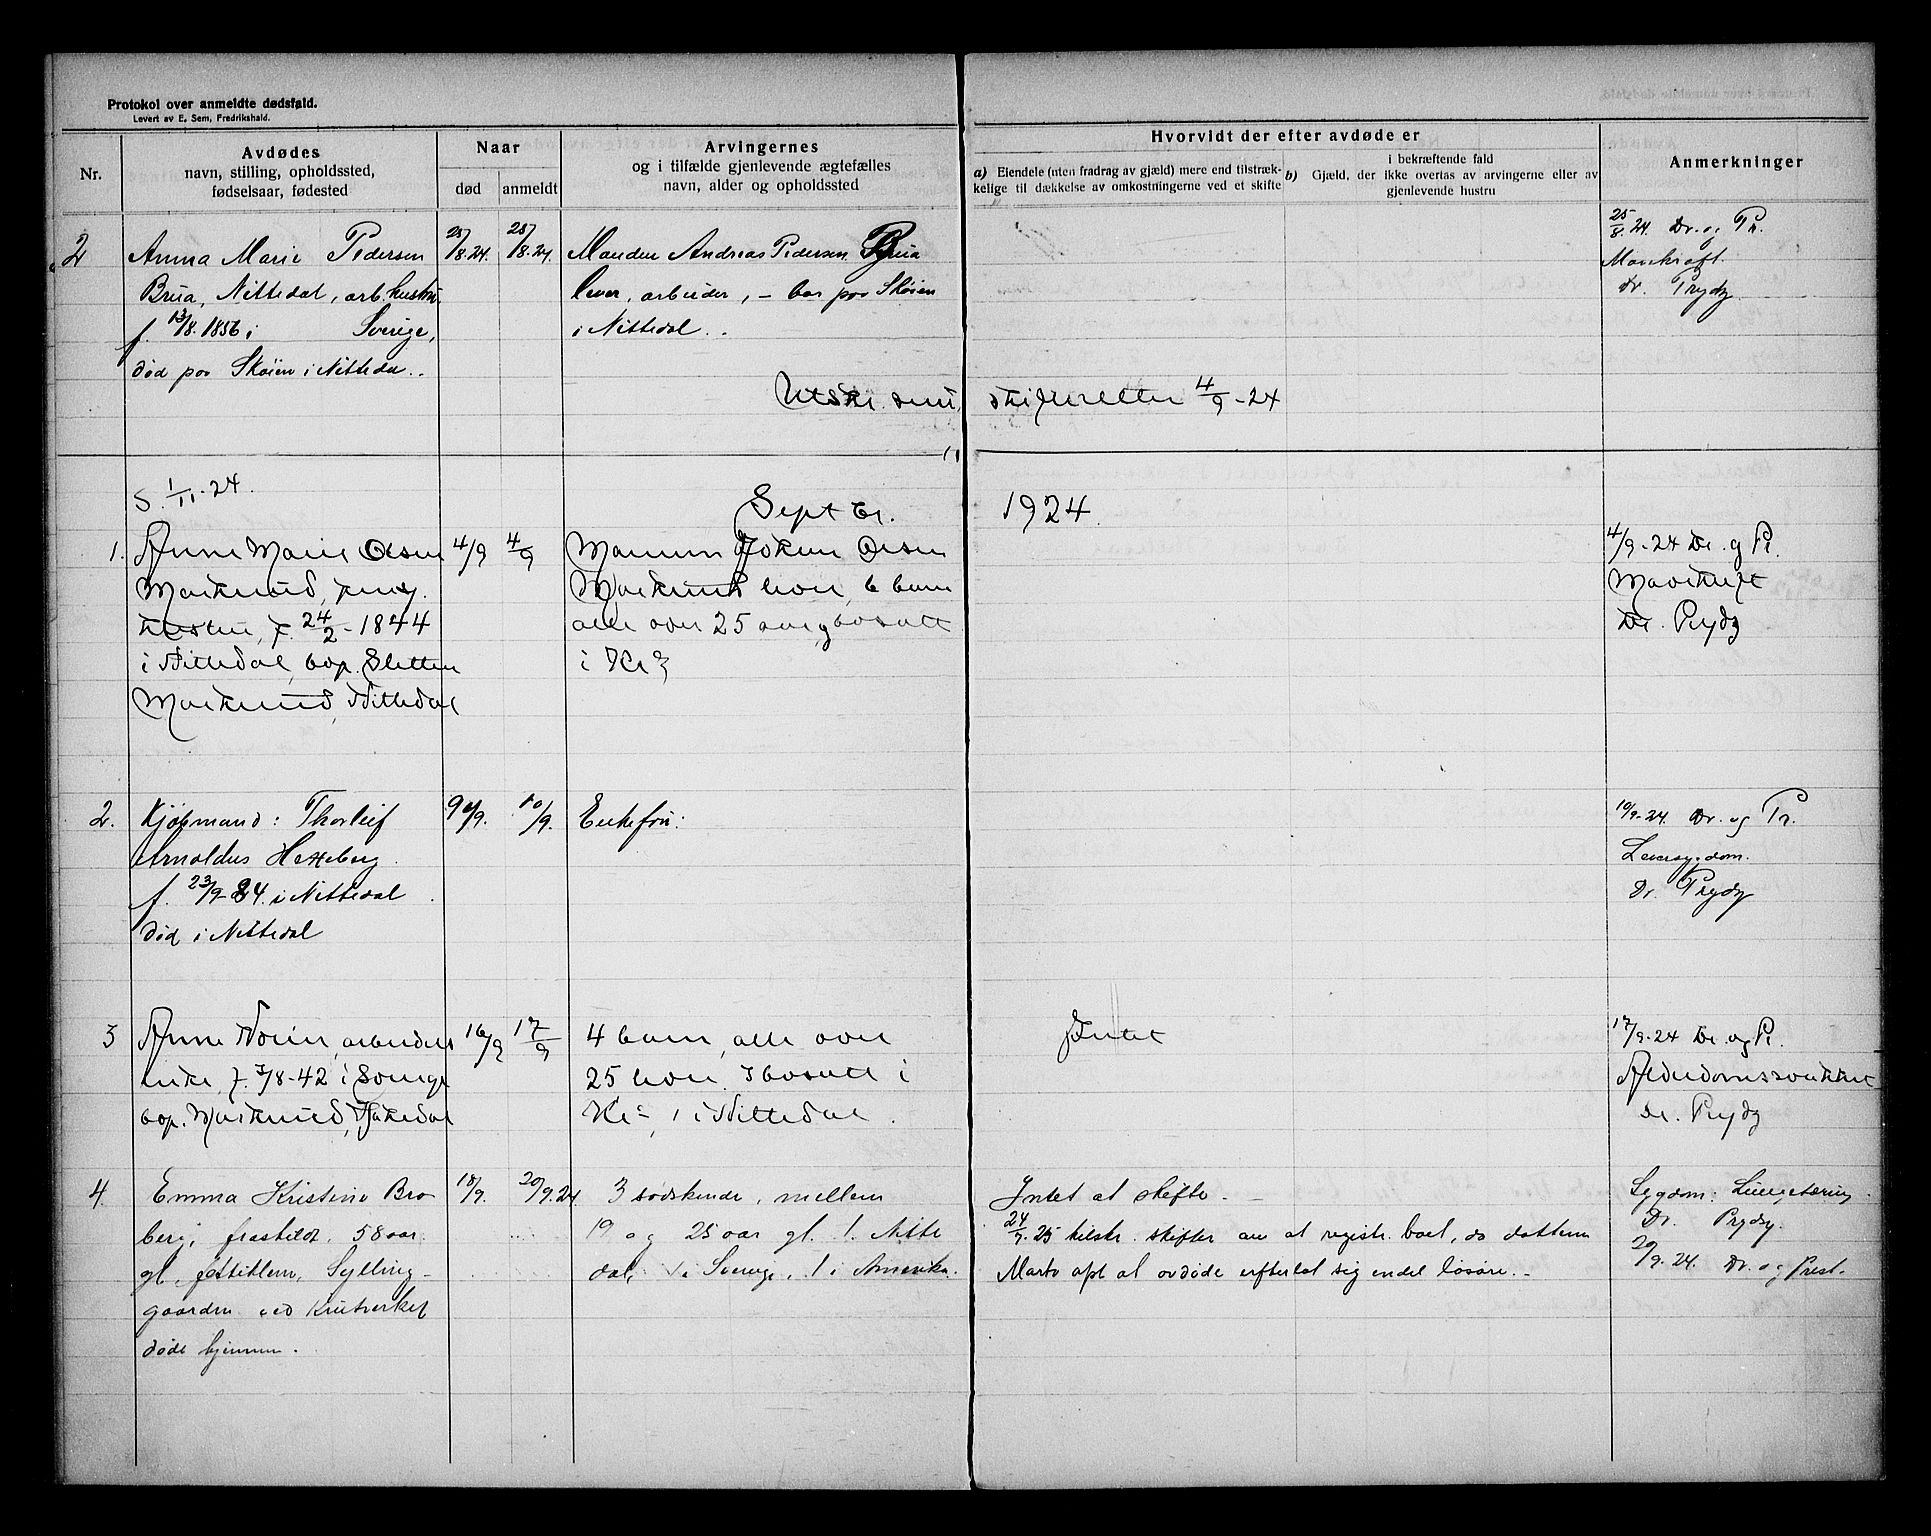 Protokol over anmeldte dødsfald.
Levert av E. Sem, Fredrikshald.
Nr.
Avdødes
navn, stilling, opholdssted,
fødselsaar, fødested
Naar
død
anmeldt
Arvingernes
og i tilfælde gjenlevende ægtefælles
navn, alder og opholdssted
Hvorvidt der efter avdøde er
a) Eiendele (uten fradrag av gjæld) mere end tilstræk-
kelige til dækkelse av omkostningerne ved et skifte
b) Gjæld, der i bekræftende fald
ikke overtas av arvingerne eller av
gjenlevende hustru
Anmerkninger
2
Anna Marie Pedersen
Brua, Nittedal, arb. hustru
f. 13/8. 1856 i Sverige,
død paa Skøien i Nittedal.
25/8.24.
25/8.24.
Manden Andreas Pedersen Brua
lever, arbeider, – bor paa Skøien
i Nittedal.
25/8.24. Dr. og Pr.
Mavekræft.
Dr. Prydz
Utskr. sent skifteretten 4/9-24
S. 1/11-24.
Septbr. 1924.
1.
Anne Marie Olsen
Markerud,
hustru, f. 24/2-1844
i Nittedal, bop. Sletten
Markerud, Nittedal
4/9
4/9
Mannen Olsen
Markerud lever, 6 barn
alle over 25 aar, bosatt
i Kr.a
4/9-24 Dr. og Pr.
Mavekræft
Dr. Prydz
2.
Kjøpmand: Thorleif
Arnoldus Hexeberg.
f. 23/9-84 i Nittedal
død i Nittedal
9/9.
10/9.
Enkefru:
10/9-24. Dr. og Pr.
Leversygdom.
Dr. Prydz
3
Anne arbeiders
enke, f. 7/8-42 i Sverige
bop. Markerud, Hakedal
16/9
17/9
4 barn, alle over
25 lever. 3 bosatt i
Kr.a, 1 i Nittedal.
Intet
17/9-24 Dr. og Pr.
Alderdomssvakhet
Dr. Prydz
4.
Emma Kristine Bro
berg, fraskildt, 58 aar
gl. Sylling-
gaarden ved Krutverket
døde hjemme.
18/9.
20/9.24
3 sødskende, mellem
19 og 25 aar gl. 1. Nitte
dal, 1 i Sverige, 1 i Amerika.
Intet at skifte. –
24/7.25 tilstr. skifter an at registr. boet, da datteren
Marta opl at avdøde efterlot sig endel løsøre. –
Sygdom: Lungetæring.
Dr. Prydz.
20/9.24. Dr. og Prest.